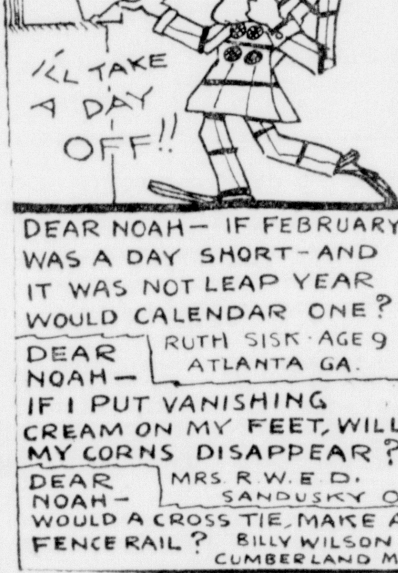 I'LL TAKE
A DAY
OFF!!
DEAR NOAH— IF FEBRUARY
WAS A DAY SHORT-AND
IT WAS NOT LEAP YEAR
WOULD CALENDAR ONE?
RUTH SISK·AGE 9
ATLANTA GA.
DEAR
NOAH—
IF I PUT VANISHING
CREAM ON MY FEET, WILL
MY CORNS DISAPPEAR?
MRS. R.W.E.D.
SANDUSKY O
DEAR
NOAH—
WOULD A CROSS TIE, MAKE A
FENCE RAIL? BILLY WILSON
CUMBERLAND M